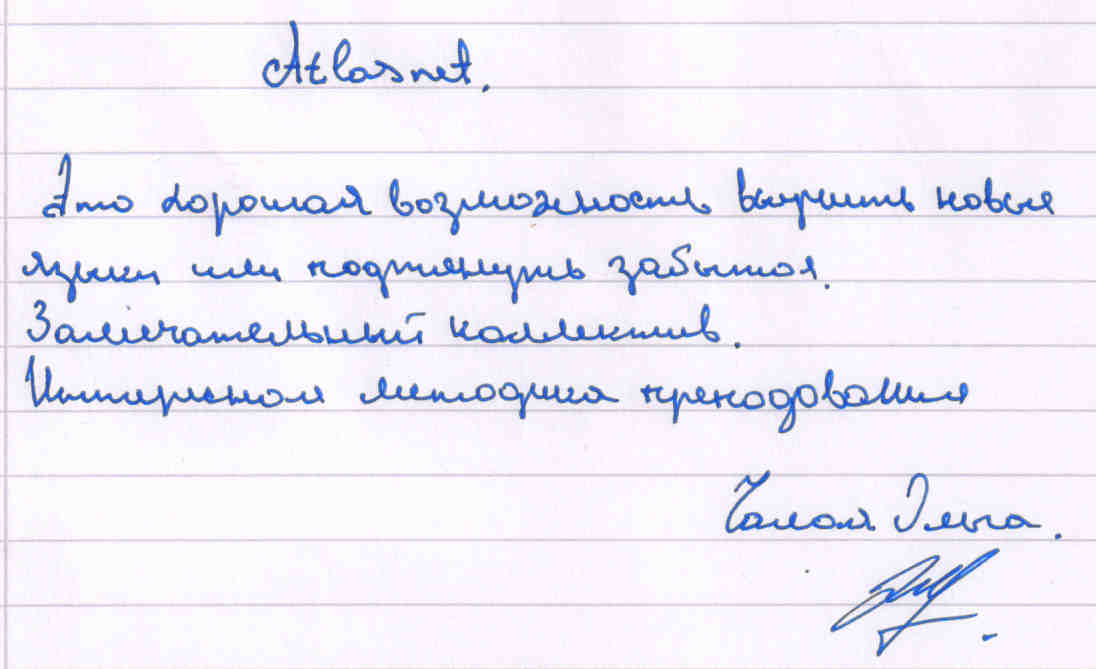 Atlasnet.
Это хорошая возможность выучить новые
языки или подтянуть забытоя.
Замечательный коллектив.
Интересная методика преподования
Чалая Ольга.